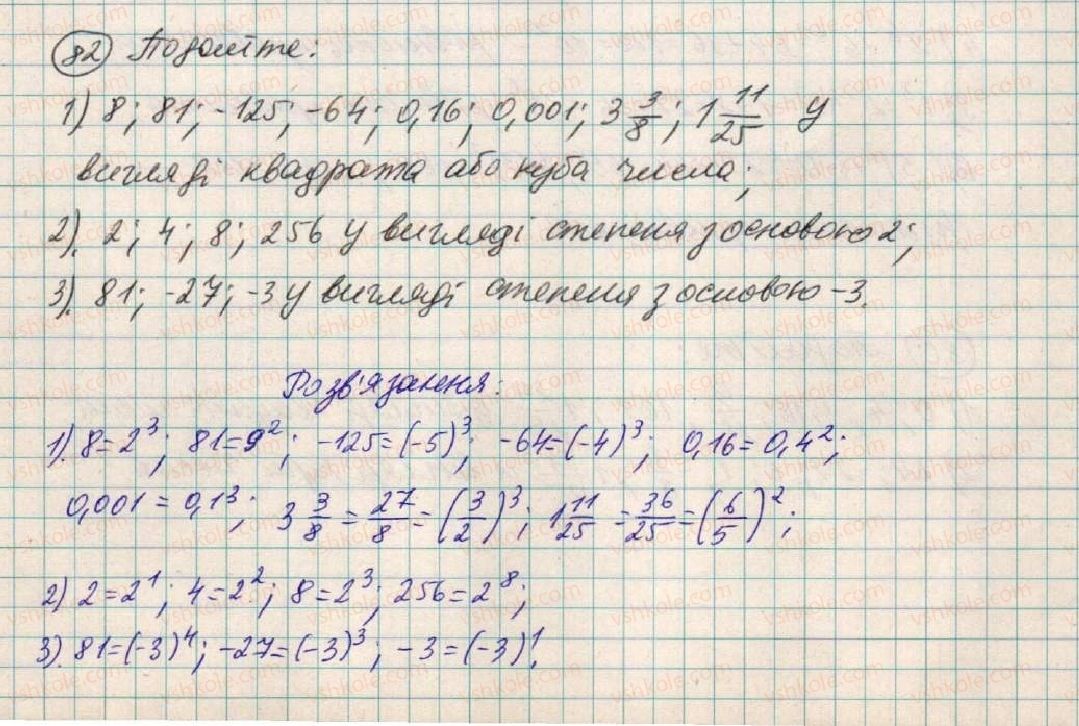 82 Подайте:
1). 8; 81; -125; -64; 0,16; 0,001; 3 3/8; 1 11/25 у
вигляді квадрата або куба числа;
2). 2; 4; 8; 256 у вигляді степеня з основою 2;
3). 81; -27; -3 у вигляді степеня з основою -3.
Розв'язання:
1). 8=2³; 81=9²; -125=(-5)³; -64=(-4)³; 0,16=0,4²;
0,001=0,1³; 3 3/8 = 27/8 = (3/2)³; 1 11/25 = 36/25 = (6/5)²;
2) 2=2¹; 4=2²; 8=2³; 256=2⁸;
3). 81=(-3)⁴; -27=(-3)³; -3=(-3)¹.